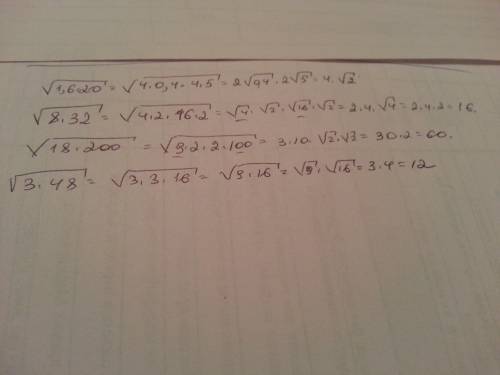 √1,6·20 = √4·0,4·4·5 = 2√0,4·2√5 = 4·√2
√8·32 = √4·2·16·2 = √4·√2·√16·√2 = 2·4·√4 = 2·4·2 = 16.
√18·200 = √9·2·2·100 = 3·10·√2·√2 = 30·2 = 60.
√3·48 = √3·3·16 = √9·16 = √9·√16 = 3·4 = 12